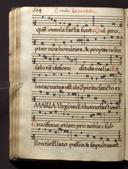 que omnia facta sunt. Qui pro-
pter nos homines, & propter nostram
salutem descendit de cœlis. Et
incarnatus est de Spiritu sancto ex
MARIA Virgine: Et homo factus est.
Crucifixus etiam pro nobis: sub
Pontio Pilato passus, & sepultus est.